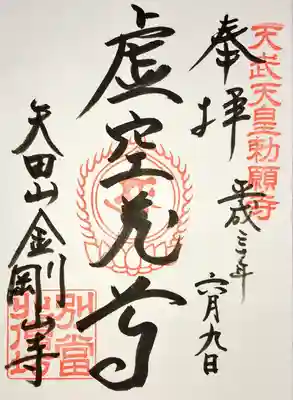 天武天皇勅願寺
奉拝
平成三年
六月九日
虚空蔵尊
矢田山金剛山寺
別當
北僧坊